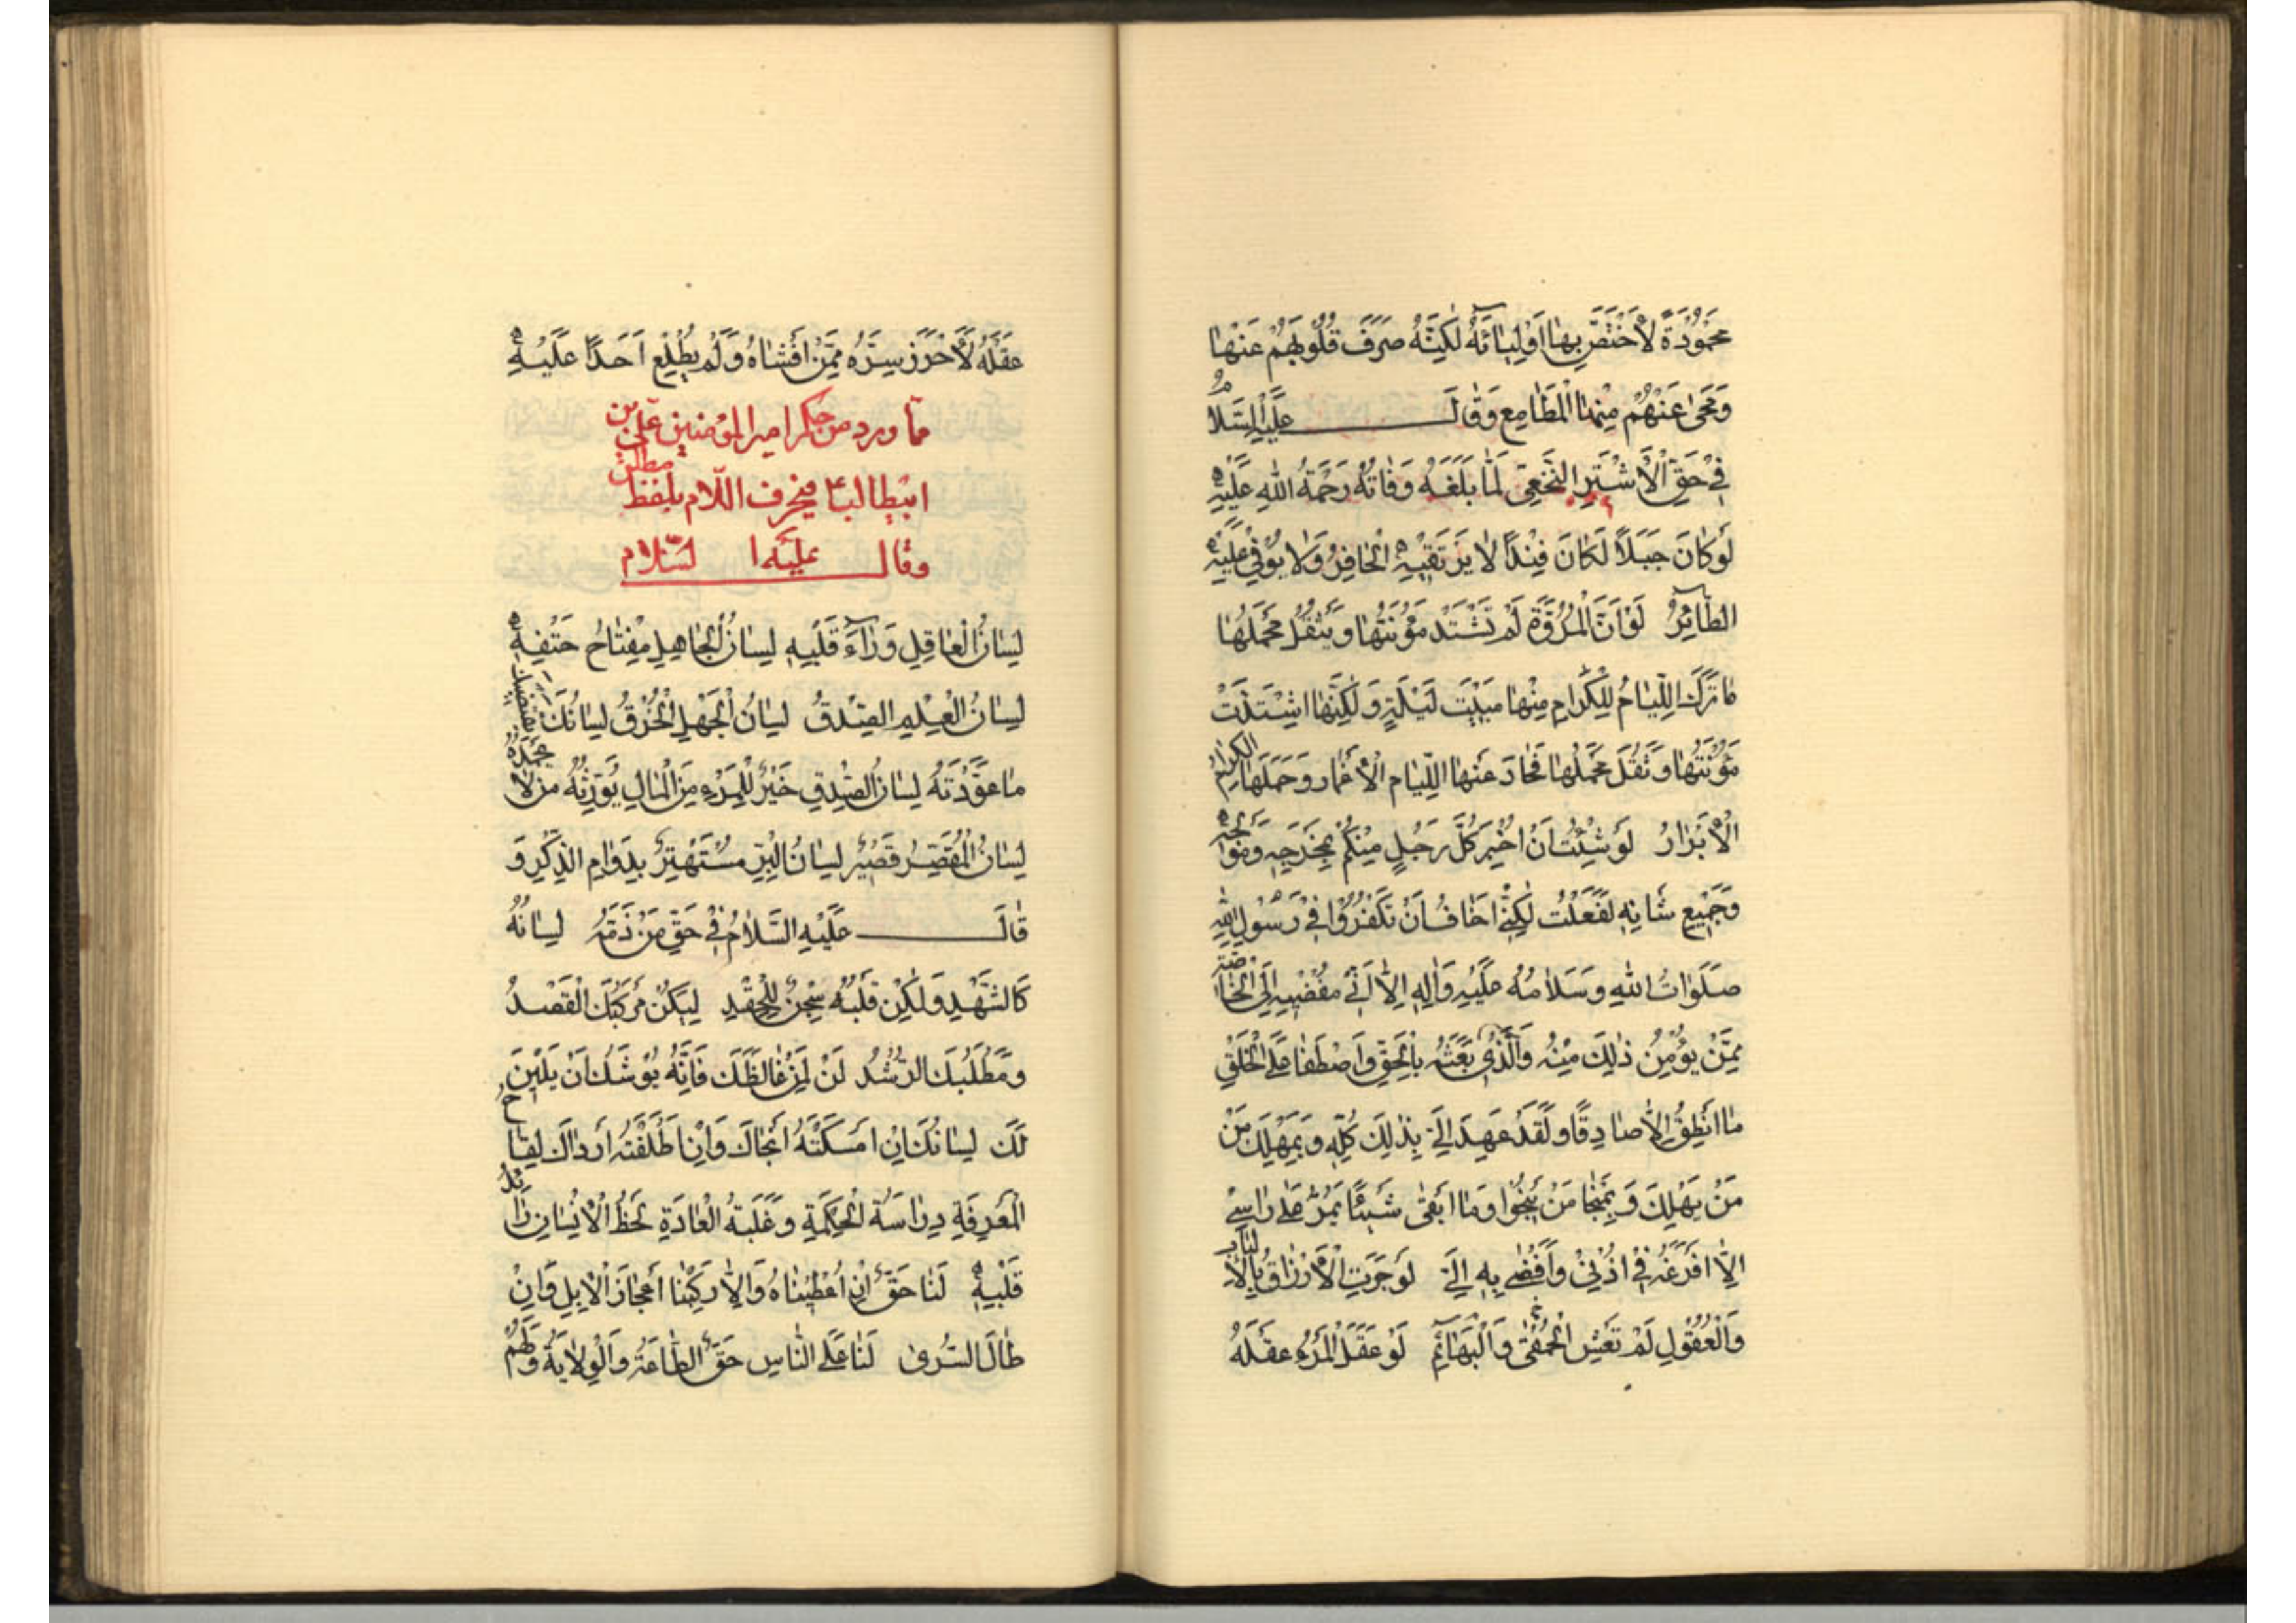 مَحْمُودَةً لَاخْتَصَّ بِهَا اَوْلِيَآئَهُ لٰكِنَّهُ صَرَفَ قُلُوبَهُمْ عَنْهَا
وَمَحىٰ عَنْهُمْ مِنْهَا الْمَطَامِعَ وَقَالَ عَلَيْهِ السَّلَامُ
فِي حَقِّ الْاَشْتَرِ النَّخَعِيِّ لَمَّا بَلَغَهُ وَفَاتُهُ رَحْمَةُ اللهِ عَلَيْهِ
لَوْ كَانَ جَبَلاً لَكَانَ فِنْداً لَا يَرْتَقِيهِ الْحَافِرُ وَلَا يُوفِي عَلَيْهِ
الطَّآئِرُ لَوْ اَنَّ الْمُرُوَّةَ لَمْ تَشْتَدَّ مَؤُنَتُهَا وَيَثْقُلْ مَحْمَلُهَا
مَا تَرَكَ اللِّيَامُ لِلْكِرَامِ مِنْهَا مَبِيتَ لَيْلَةٍ وَلٰكِنَّهَا اشْتَدَّتْ
مَؤُنَتُهَا وَثَقُلَ مَحْمَلُهَا فَحَادَ عَنْهَا اللِّيَامُ الْاَغْمَارُ وَحَمَلَهَا الْكِرَامُ
الْاَبْرَارُ لَوْ شِئْتُ اَنْ اُخْبِرَ كُلَّ رَجُلٍ مِنْكُمْ بِمَخْرَجِهِ وَمَوْلِجِهِ
وَجَمِيعِ شَانِهِ لَفَعَلْتُ لٰكِنِّي اَخَافُ اَنْ تَكْفُرُوا فِي رَسُولِ اللهِ
صَلَوَاتُ اللهِ وَسَلَامُهُ عَلَيْهِ وَاٰلِهِ اِلَّا اَنِّي مُفْضِيهِ اِلَى الْخَاصَّةِ
مِمَّنْ يُؤْمَنُ ذٰلِكَ مِنْهُ وَالَّذِي بَعَثَهُ بِالْحَقِّ وَاصْطَفَاهُ عَلَى الْخَلْقِ
مَا اَنْطِقُ اِلَّا صَادِقًا وَلَقَدْ عَهِدَ اِلَيَّ بِذٰلِكَ كُلِّهِ وَبِمَهْلِكِ مَنْ
مَنْ يَهْلِكُ وَبِمَنْجَا مَنْ يَنْجُوا وَمَا اَبْقىٰ شَيْئًا يَمُرُّ عَلىٰ رَاسِي
اِلَّا اَفْرَغَهُ فِي اُذُنِي وَاَفْضىٰ بِهِ اِلَيَّ لَوْ جَرَتِ الْاَرْزَاقُ بِالْاَلْبَابِ
وَالْعُقُولِ لَمْ تَعِشِ الْحَمْقىٰ وَالْبَهَائِمُ لَوْ عَقَلَ الْمَرْءُ عَقْلَهُ
عَقْلَهُ لَاَحْرَزَ سِرَّهُ مِمَّنْ اَفْشَاهُ وَلَمْ يُطْلِعْ اَحَدًا عَلَيْهِ
مما ورد من حكم امير المؤمنين علي بن
ابيطالب ع في حرف اللام بلفظ مطلق
وقال عليه السلام
لِسَانُ الْعَاقِلِ وَرَآءَ قَلْبِهِ لِسَانُ الْجَاهِلِ مِفْتَاحُ حَتْفِهِ
لِسَانُ الْعِلْمِ الصِّدْقُ لِسَانُ الْجَهْلِ الْخُرْقُ لِسَانُكَ يَقْتَضِيكَ
مَا عَوَّدْتَهُ لِسَانُ الصِّدْقِ خَيْرٌ لِلْمَرْءِ مِنَ الْمَالِ يُوَرِّثُهُ مَنْ لَا يَحْمَدُهُ
لِسَانُ الْمُقَصِّرِ قَصِيرٌ لِسَانُ الْبِرِّ مُسْتَهْتِرٌ بِدَوَامِ الذِّكْرِ وَ
قَالَ عَلَيْهِ السَّلَامُ فِي حَقِّ مَنْ ذَمَّهُ لِسَانُهُ
كَالشَّهْدِ وَلٰكِنْ قَلْبُهُ سِجْنٌ لِلْحِقْدِ لِيَكُنْ مَرْكَبُكَ الْقَصْدَ
وَمَطْلَبُكَ الرُّشْدَ لِنْ لِمَنْ غَالَظَكَ فَاِنَّهُ يُوشَكُ اَنْ يَلِينَ
لَكَ لِسَانُكَ اِنْ اَمْسَكْتَهُ اَنْجَاكَ وَاِنْ اَطْلَقْتَهُ اَرْدَاكَ لِقَاحُ
الْمَعْرِفَةِ دِرَاسَةُ الْحِكْمَةِ وَغَلَبَةُ الْعَادَةِ لَحْظُ الْاِنْسَانِ رَائِدُ
قَلْبِهِ لَنَا حَقٌّ اِنْ اُعْطِينَاهُ وَاِلَّا رَكِبْنَا اَعْجَازَ الْاِبِلِ وَاِنْ
طَالَ السُّرىٰ لَنَا عَلَى النَّاسِ حَقُّ الطَّاعَةِ وَالْوِلَايَةِ وَلَهُمْ